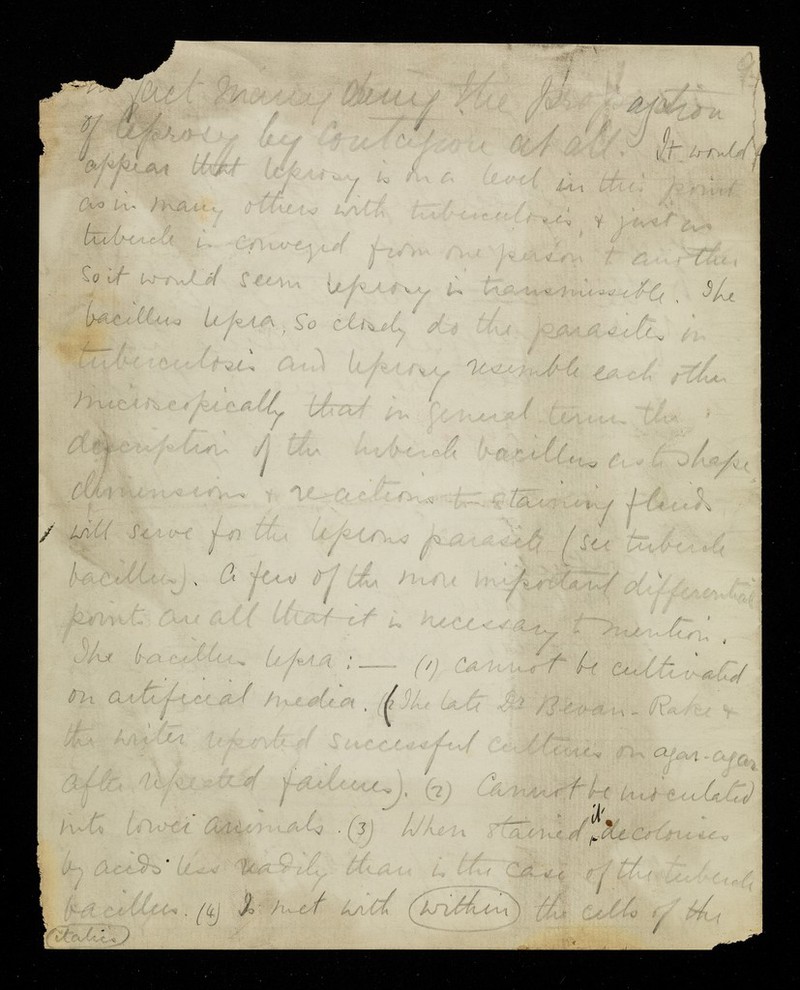 in fact many deny the Propagation
of leprosy by contagion at all. It would
appear that leprosy is on a level in this point
as in many others with tuberculosis, & just as
tubercle is conveyed from one person to another
So it would seem leprosy is transmissible. The
bacillus lepra, So closely do the parasites in
tuberculosis and leprosy resemble each other
microscopically that in general terms the
description of the tubercle bacillus as to shape,
dimensions & reactions to staining fluids
will serve for the leprous parasite (see tubercle
bacillus). A few of the more important differential
points are all that it is necessary to mention.
The bacillus lepra :— (1) cannot be cultivated
on artificial media. (The late Dr Bevan-Rake &
the writer reported successful cultures on agar-agar
after repeated failures). (2) Cannot be inoculated
into lower animals. (3) When stained it decolorises
by acids less readily than is the case of the tubercle
bacillus. (4) Is met with within the cells of the
italics